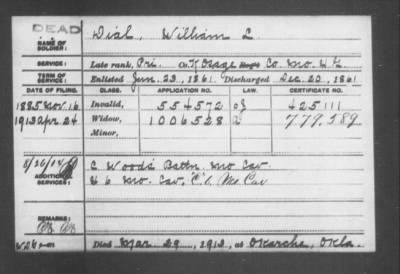 DEAD
NAME OF SOLDIER: Dial, William L.
Late rank, Pri. Co. Osage Co. Mo. H.G.
TERM OF SERVICE: Enlisted Jun. 23, 1861. Discharged Dec. 20, 1861
DATE OF FILING. CLASS. APPLICATION NO. LAW. CERTIFICATE NO.
1885 Nov. 16 Invalid, 554572 425111
1913 Apr 24 Widow, 1006528 779.589
Minor,
ADDITIONAL SERVICES: C Woods Battn. Mo Cav
Mo. Cav, Mo Cav
REMARKS:
Died Mar. 29, 1913, at Okarche, Okla.